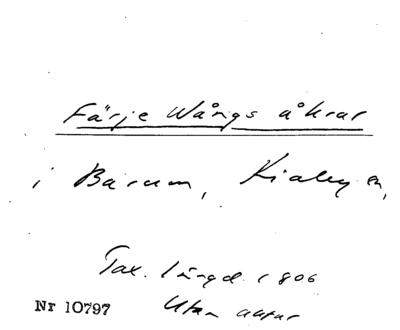 Färje Wångs åkrar
i Barum, Kiaby sn,
Tax. längd 1806
Nr 10797 Utan aktnr